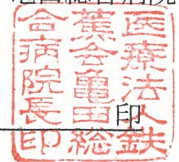 医療法人鉄
蕉会亀田総
合病院長印
印